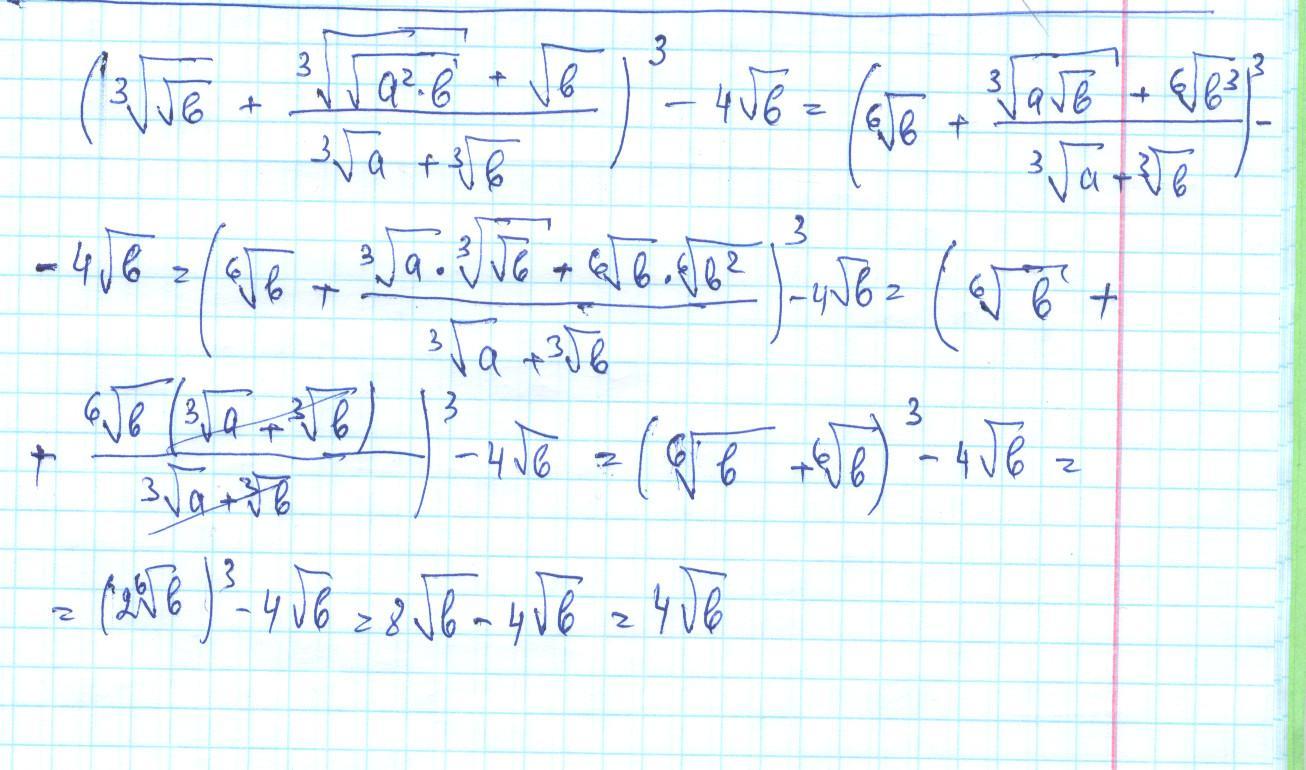 (∛√b + (∛√(a²·b) + √b)/(∛a + ∛b))³ − 4√b = (⁶√b + (∛(a√b) + ⁶√b³)/(∛a + ∛b))³ −
− 4√b = (⁶√b + (∛a · ∛√b + ⁶√b · ⁶√b²)/(∛a + ∛b))³ − 4√b = (⁶√b +
+ (⁶√b (∛a + ∛b))/(∛a + ∛b))³ − 4√b = (⁶√b + ⁶√b)³ − 4√b =
= (2⁶√b)³ − 4√b = 8√b − 4√b = 4√b